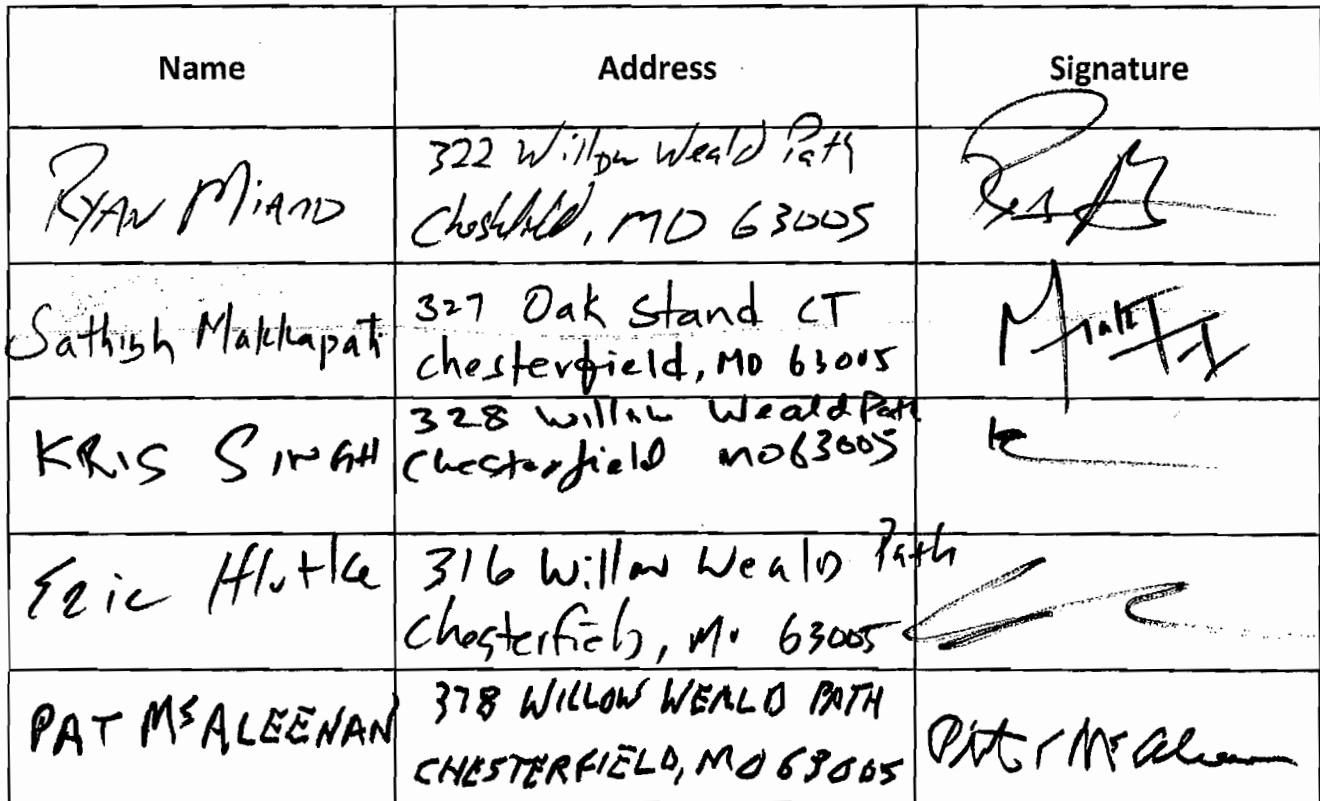 Name Address Signature
RYAN MIANO
322 Willow Weald Path
Chesterfield, MO 63005
Sathish Makkapati
327 Oak Stand CT
Chesterfield, MO 63005
KRIS SINGH
328 Willow Weald Path
Chesterfield MO 63005
Eric Hlutke
316 Willow Weald Path
Chesterfield, Mo 63005
PAT McALEENAN
378 WILLOW WEALD PATH
CHESTERFIELD, MO 63005